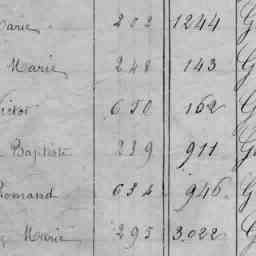 Marie 202 1244 G
Marie 248 143 G
Victor 650 162 G
Baptiste 239 911 G
Romand 634 946 G
Marie 295 3.022 G